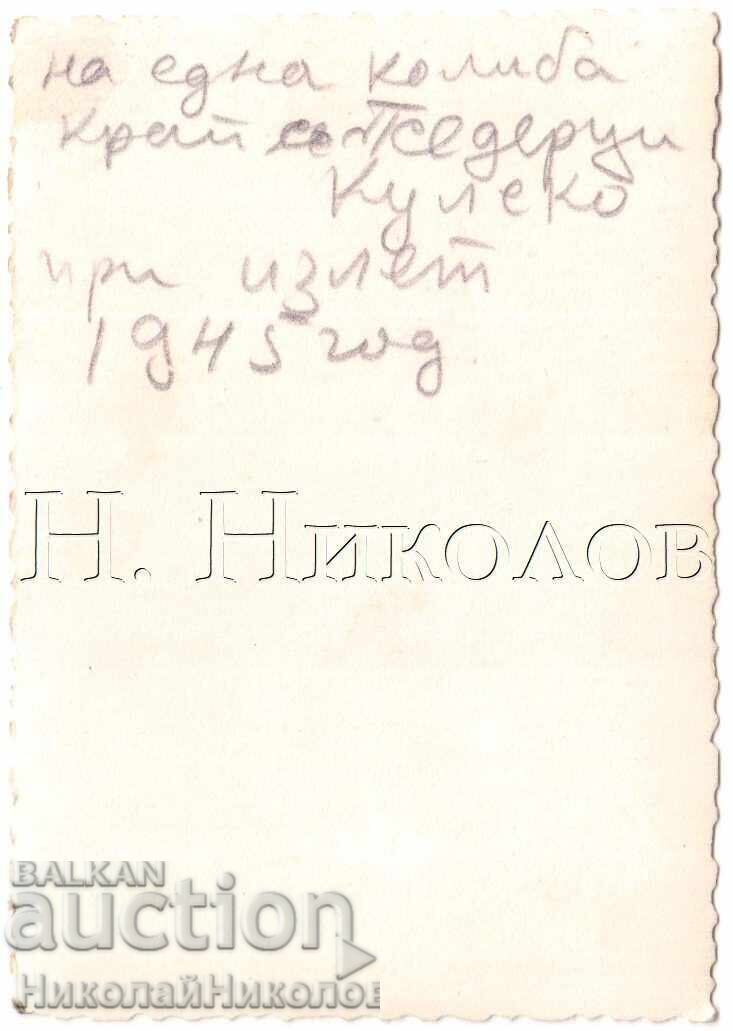 на една колиба
край с. Педерци
Кулеко
при излет
1945 год
Н. Николов
BALKAN
auction
НиколайНиколов